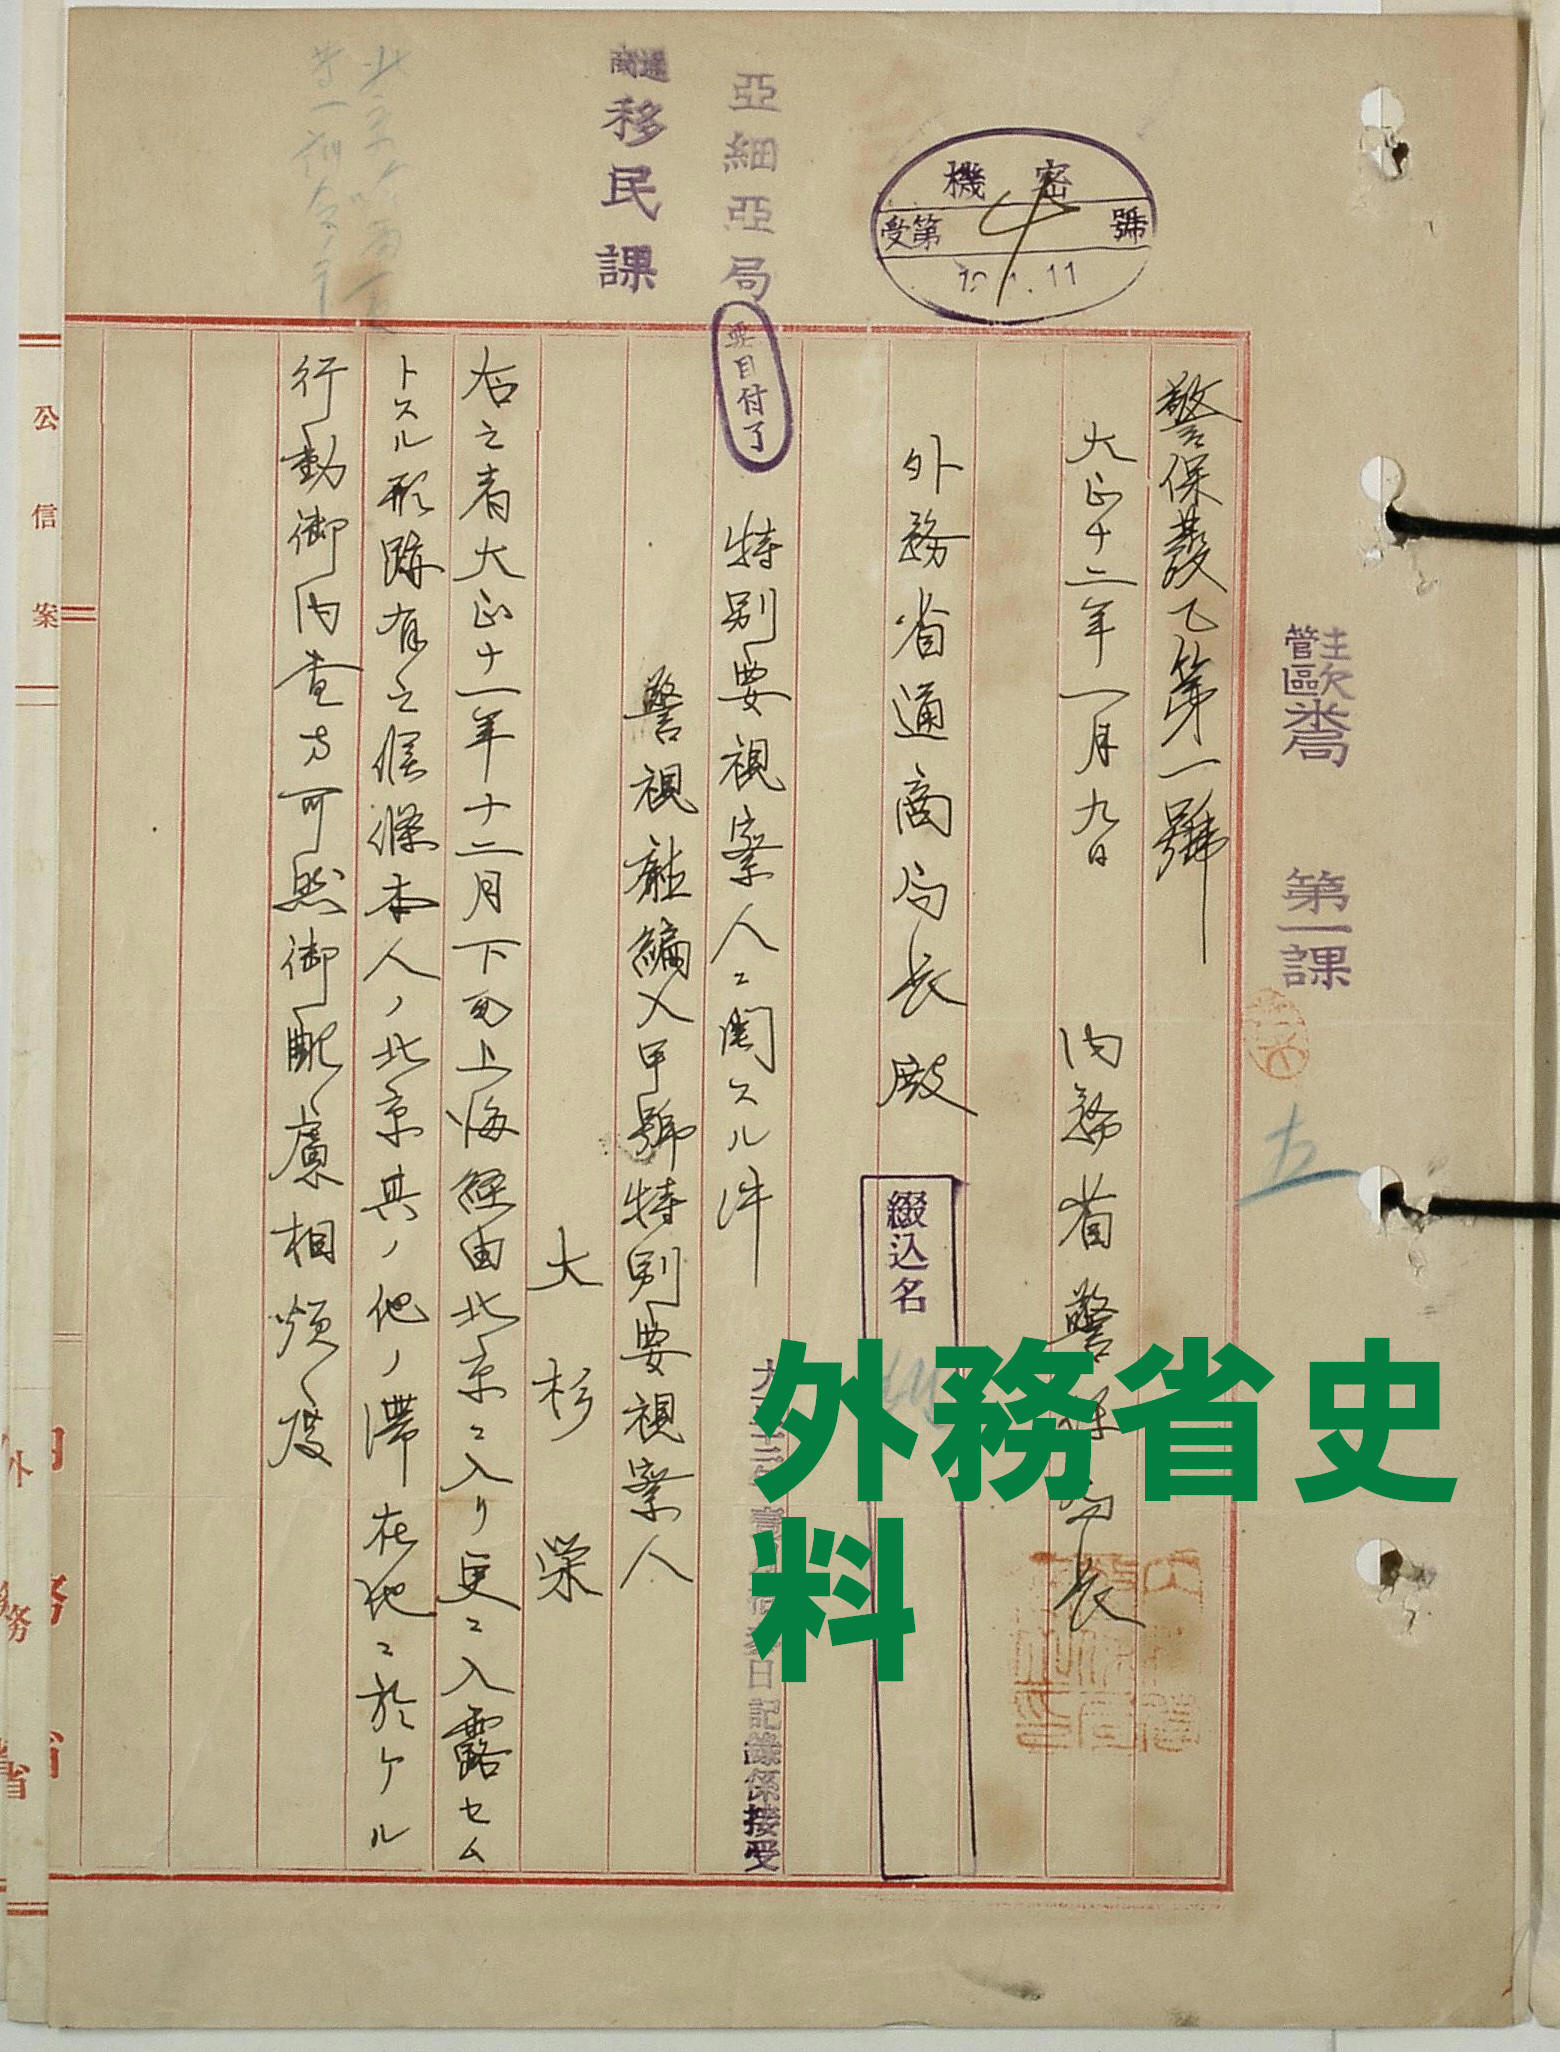 主管 歐米局 第一課
五
機密
受第 號
警保發乙第一號
大正十二年一月九日
內務省警保局長
外務省通商局長殿
綴込名
亞細亞局
要目付了
特別要視察人ニ関スル件
記錄係接受
通商
移民課
警視廳編入甲號特別要視察人
大杉栄
右之者大正十一年十二月下旬上海経由北京ニ入リ更ニ入露セム
トスル形跡有之候條本人ノ北京其ノ他ノ滯在地ニ於ケル
行動御內査方可然御配慮相煩度
公信案
外務省
外務省史
料